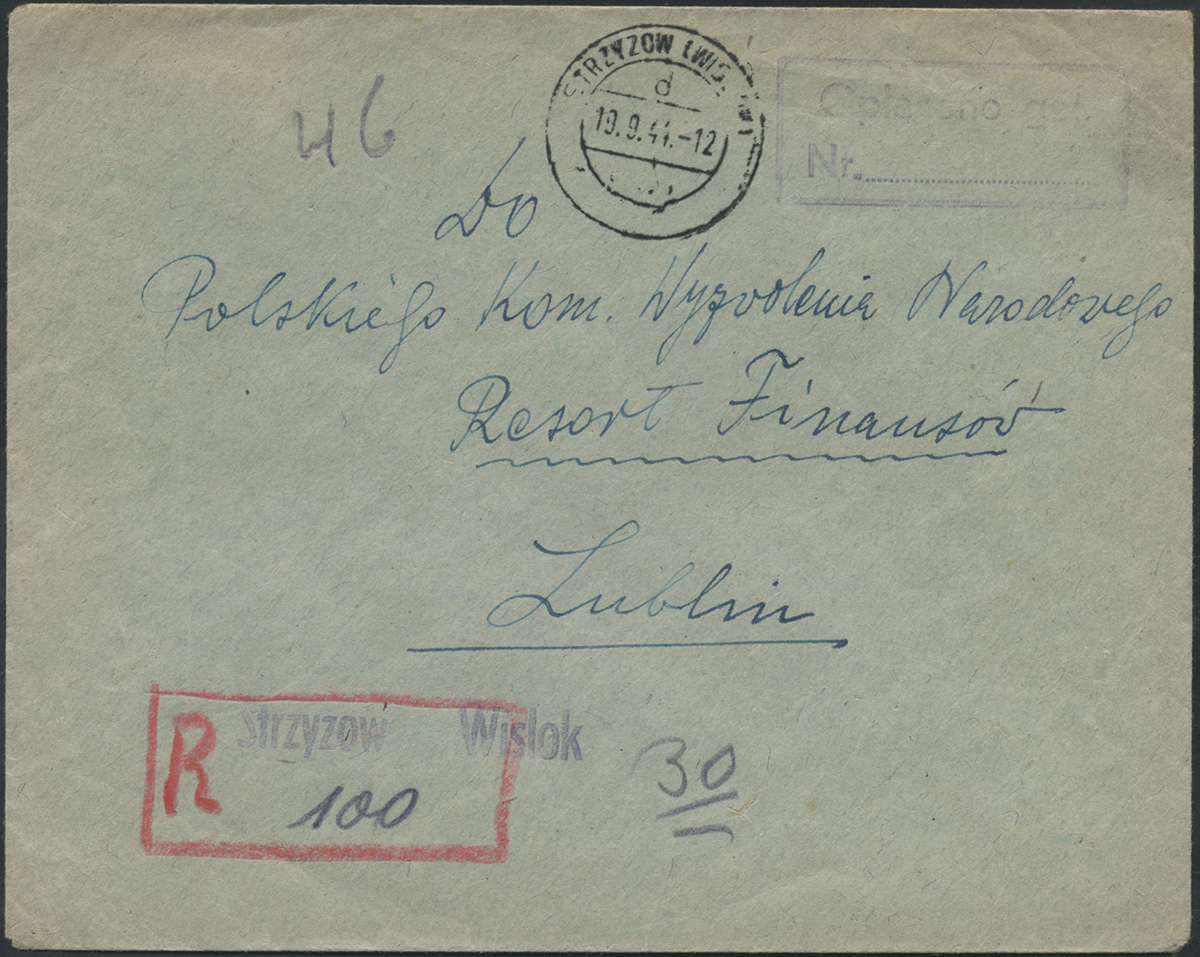 46
STRZYZOW (WISLOK)
d
19.9.44.-12
Opłacono got.
Nr.
Do
Polskiego Kom. Wyzwolenia Narodowego
Resort Finansów
Lublin
R Strzyzow Wislok
100
30